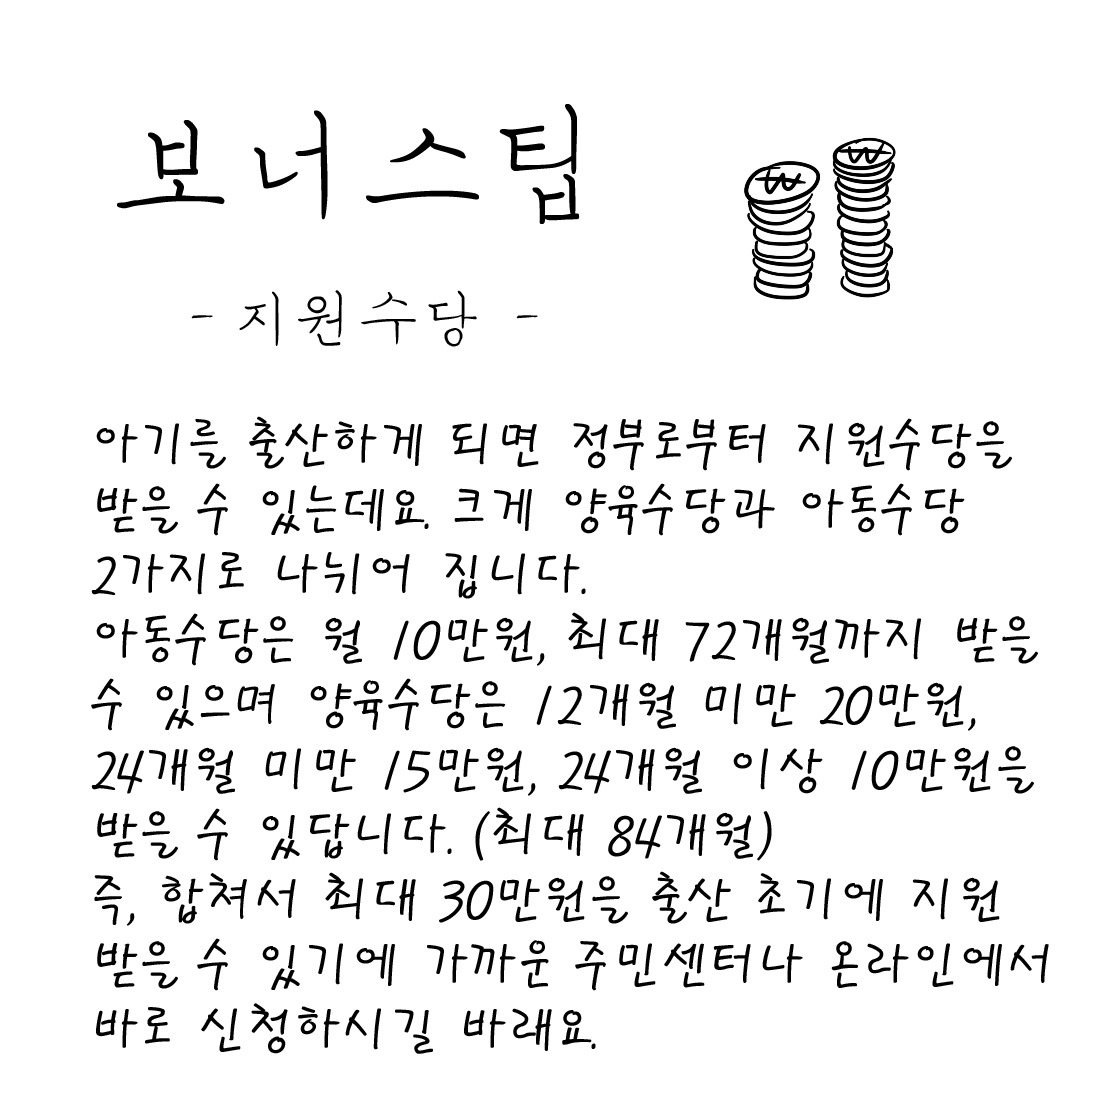 보너스팁
₩ ₩
- 지원수당 -
아기를 출산하게 되면 정부로부터 지원수당을
받을 수 있는데요. 크게 양육수당과 아동수당
2가지로 나뉘어 집니다.
아동수당은 월 10만원, 최대 72개월까지 받을
수 있으며 양육수당은 12개월 미만 20만원,
24개월 미만 15만원, 24개월 이상 10만원을
받을 수 있답니다. (최대 84개월)
즉, 합쳐서 최대 30만원을 출산 초기에 지원
받을 수 있기에 가까운 주민센터나 온라인에서
바로 신청하시길 바래요.